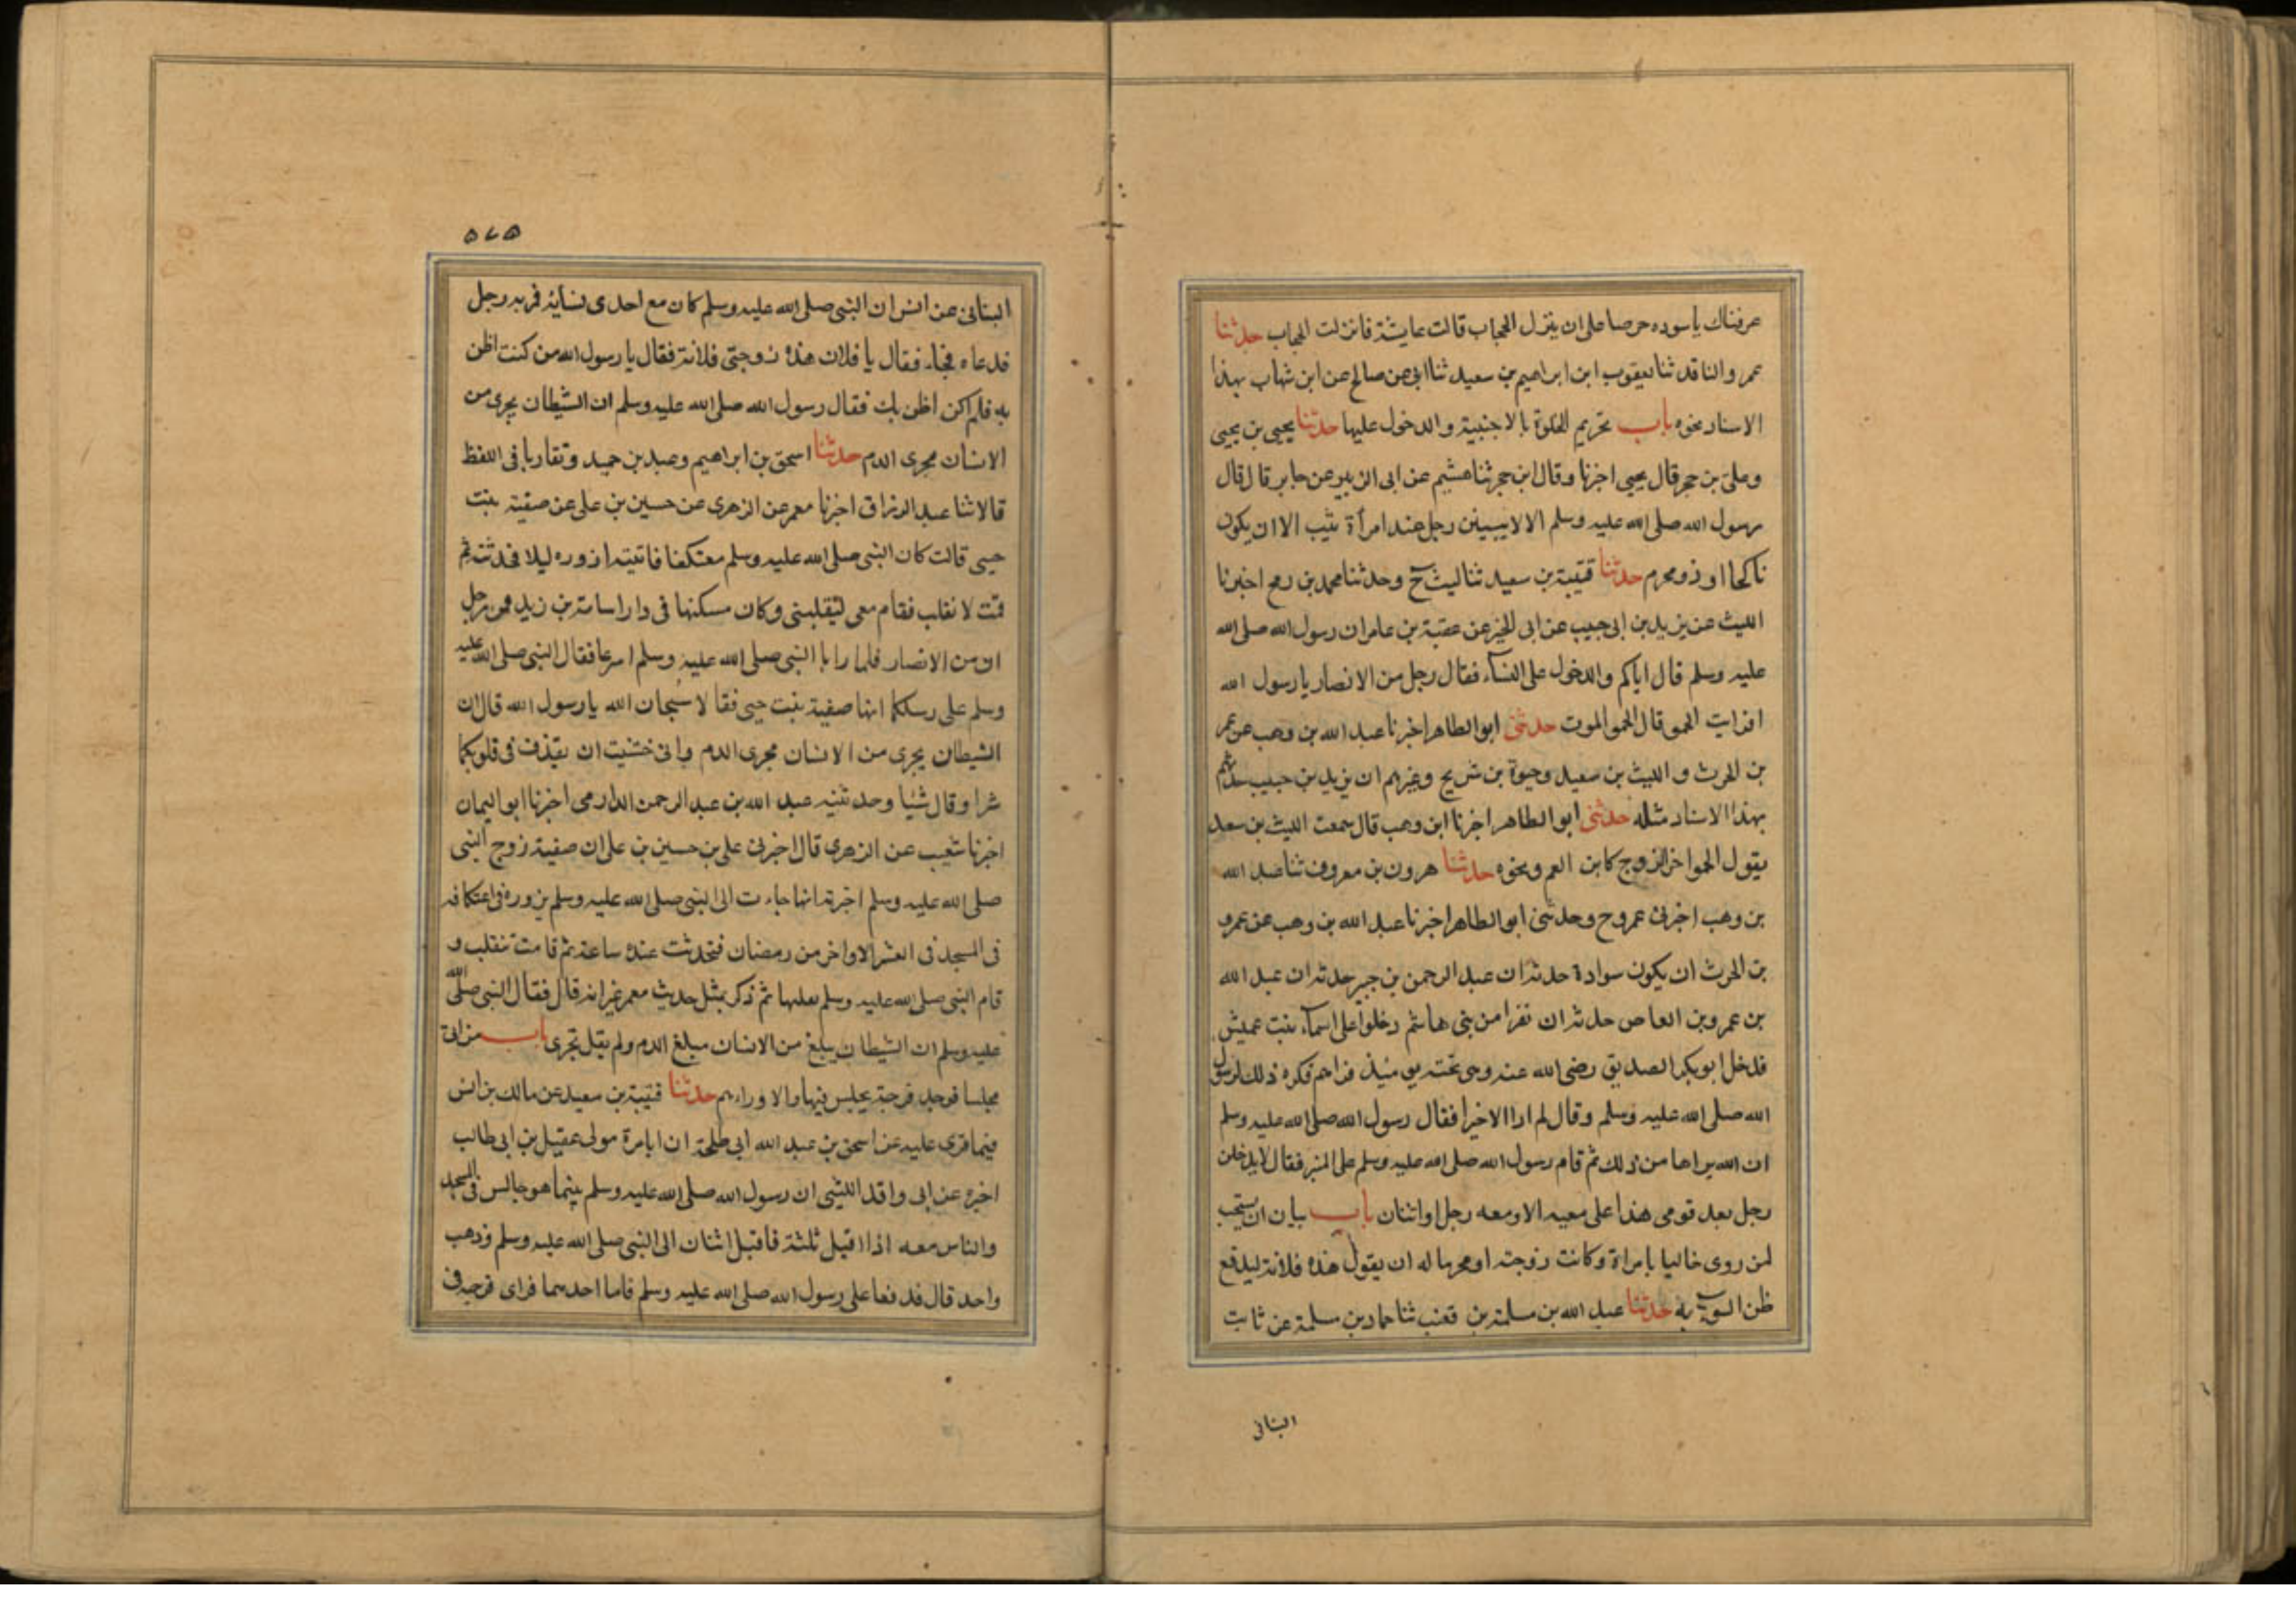 عرفناك ياسوده حرصا على ان ينزل الحجاب قالت عايشة فانزلت الحجاب حدثنا
عمرو الناقد ثنا يعقوب ابن ابراهيم بن سعيد ثنا ابى عن صالح عن ابن شهاب بهذا
الاسناد نحوه باب تحريم الخلوة بالاجنبية والدخول عليها حدثنا يحيى بن يحيى
وعلى بن حجر قال يحيى اخبرنا وقال ابن حجر ثنا هشيم عن ابى الزبير عن جابر قال قال
رسول الله صلى الله عليه وسلم الا لا يبيتن رجل عند امرأة ثيب الا ان يكون
ناكحا او ذو محرم حدثنا قتيبة بن سعيد ثنا ليث ح وحدثنا محمد بن رمح اخبرنا
الليث عن يزيد بن ابى حبيب عن ابى الخير عن عقبة بن عامر ان رسول الله صلى الله
عليه وسلم قال اياكم والدخول على النسآء فقال رجل من الانصار يا رسول الله
افرايت الحمو قال الحمو الموت حدثنى ابو الطاهر اخبرنا عبد الله بن وهب عن عمر
بن الحرث و الليث بن سعيد وحيوة بن شريح وغيرهم ان يزيد بن حبيب حدثهم
بهذا الاسناد مثله حدثنى ابو الطاهر اخبرنا ابن وهب قال سمعت الليث بن سعد
يقول الحمو اخ الزوج كابن العم ونحوه حدثنا هرون بن معروف ثنا عبد الله
بن وهب اخبرنى عمرو ح وحدثنى ابو الطاهر اخبرنا عبد الله بن وهب عن عمرو
بن الحرث ان يكون سوادة حدثه ان عبد الرحمن بن جبير حدثه ان عبد الله
بن عمرو بن العاص حدثه ان نفرا من بنى هاشم دخلوا على اسمآء بنت عميس
فدخل ابو بكر الصديق رضى الله عنه وهى تحته يومئذ فراهم فكره ذلك لرسول
الله صلى الله عليه وسلم وقال لم ار الا خيرا فقال رسول الله صلى الله عليه وسلم
ان الله براها من ذلك ثم قام رسول الله صلى الله عليه وسلم على المنبر فقال لا يدخلن
رجل بعد قومى هذا على مغيبة الا ومعه رجل او اثنان باب بيان ان يستحب
لمن روى خاليا بامراة وكانت زوجته او محرما له ان يقول هذه فلانة ليدفع
ظن السوء به حدثنا عبد الله بن مسلمة بن قعنب ثنا حماد بن سلمة عن ثابت
البنانى
٥٧٥
البنانى عن انس ان النبى صلى الله عليه وسلم كان مع احدى نسائه فمر به رجل
فدعاه فجاء فقال يا فلان هذه زوجتى فلانة فقال يا رسول الله من كنت اظن
به فلم اكن اظن بك فقال رسول الله صلى الله عليه وسلم ان الشيطان يجرى من
الانسان مجرى الدم حدثنا اسحق بن ابراهيم وعبد بن حميد وتقاربا فى اللفظ
قالا ثنا عبد الرزاق اخبرنا معمر عن الزهرى عن حسين بن على عن صفية بنت
حيى قالت كان النبى صلى الله عليه وسلم معتكفا فاتيته ازوره ليلا فحدثته ثم
قمت لانقلب فقام معى ليقلبنى وكان مسكنها فى دار اسامة بن زيد فمر رجل
ان من الانصار فلما رايا النبى صلى الله عليه وسلم اسرعا فقال النبى صلى الله عليه
وسلم على رسلكما انها صفية بنت حيى فقالا سبحان الله يا رسول الله قال ان
الشيطان يجرى من الانسان مجرى الدم وانى خشيت ان يقذف فى قلوبكما
شرا وقال شئيا وحدثنيه عبد الله بن عبد الرحمن الدارمى اخبرنا ابو اليمان
اخبرنا شعيب عن الزهرى قال اخبرنى على بن حسين بن على ان صفية زوج النبى
صلى الله عليه وسلم اخبرته انها جاءت الى النبى صلى الله عليه وسلم تزوره فى اعتكافه
فى المسجد فى العشر الاواخر من رمضان فتحدثت عنده ساعة ثم قامت تنقلب و
قام النبى صلى الله عليه وسلم يقلبها ثم ذكر بمثل حديث معمر غير انه قال فقال النبى صلى الله
عليه وسلم ان الشيطان يبلغ من الانسان مبلغ الدم ولم يقل يجرى باب من اتى
مجلسا فوجد فرجة يجلس فيها والا وراءهم حدثنا قتيبة بن سعيد عن مالك بن انس
فيما قرى عليه عن اسحق بن عبد الله ابى طلحة ان ابا مرة مولى عقيل بن ابى طالب
اخبره عن ابى واقد الليثى ان رسول الله صلى الله عليه وسلم بينما هو جالس فى المسجد
والناس معه اذا اقبل ثلثة فاقبل اثنان الى النبى صلى الله عليه وسلم وذهب
واحد قال فدفعا على رسول الله صلى الله عليه وسلم فاما احدهما فراى فرجة فى